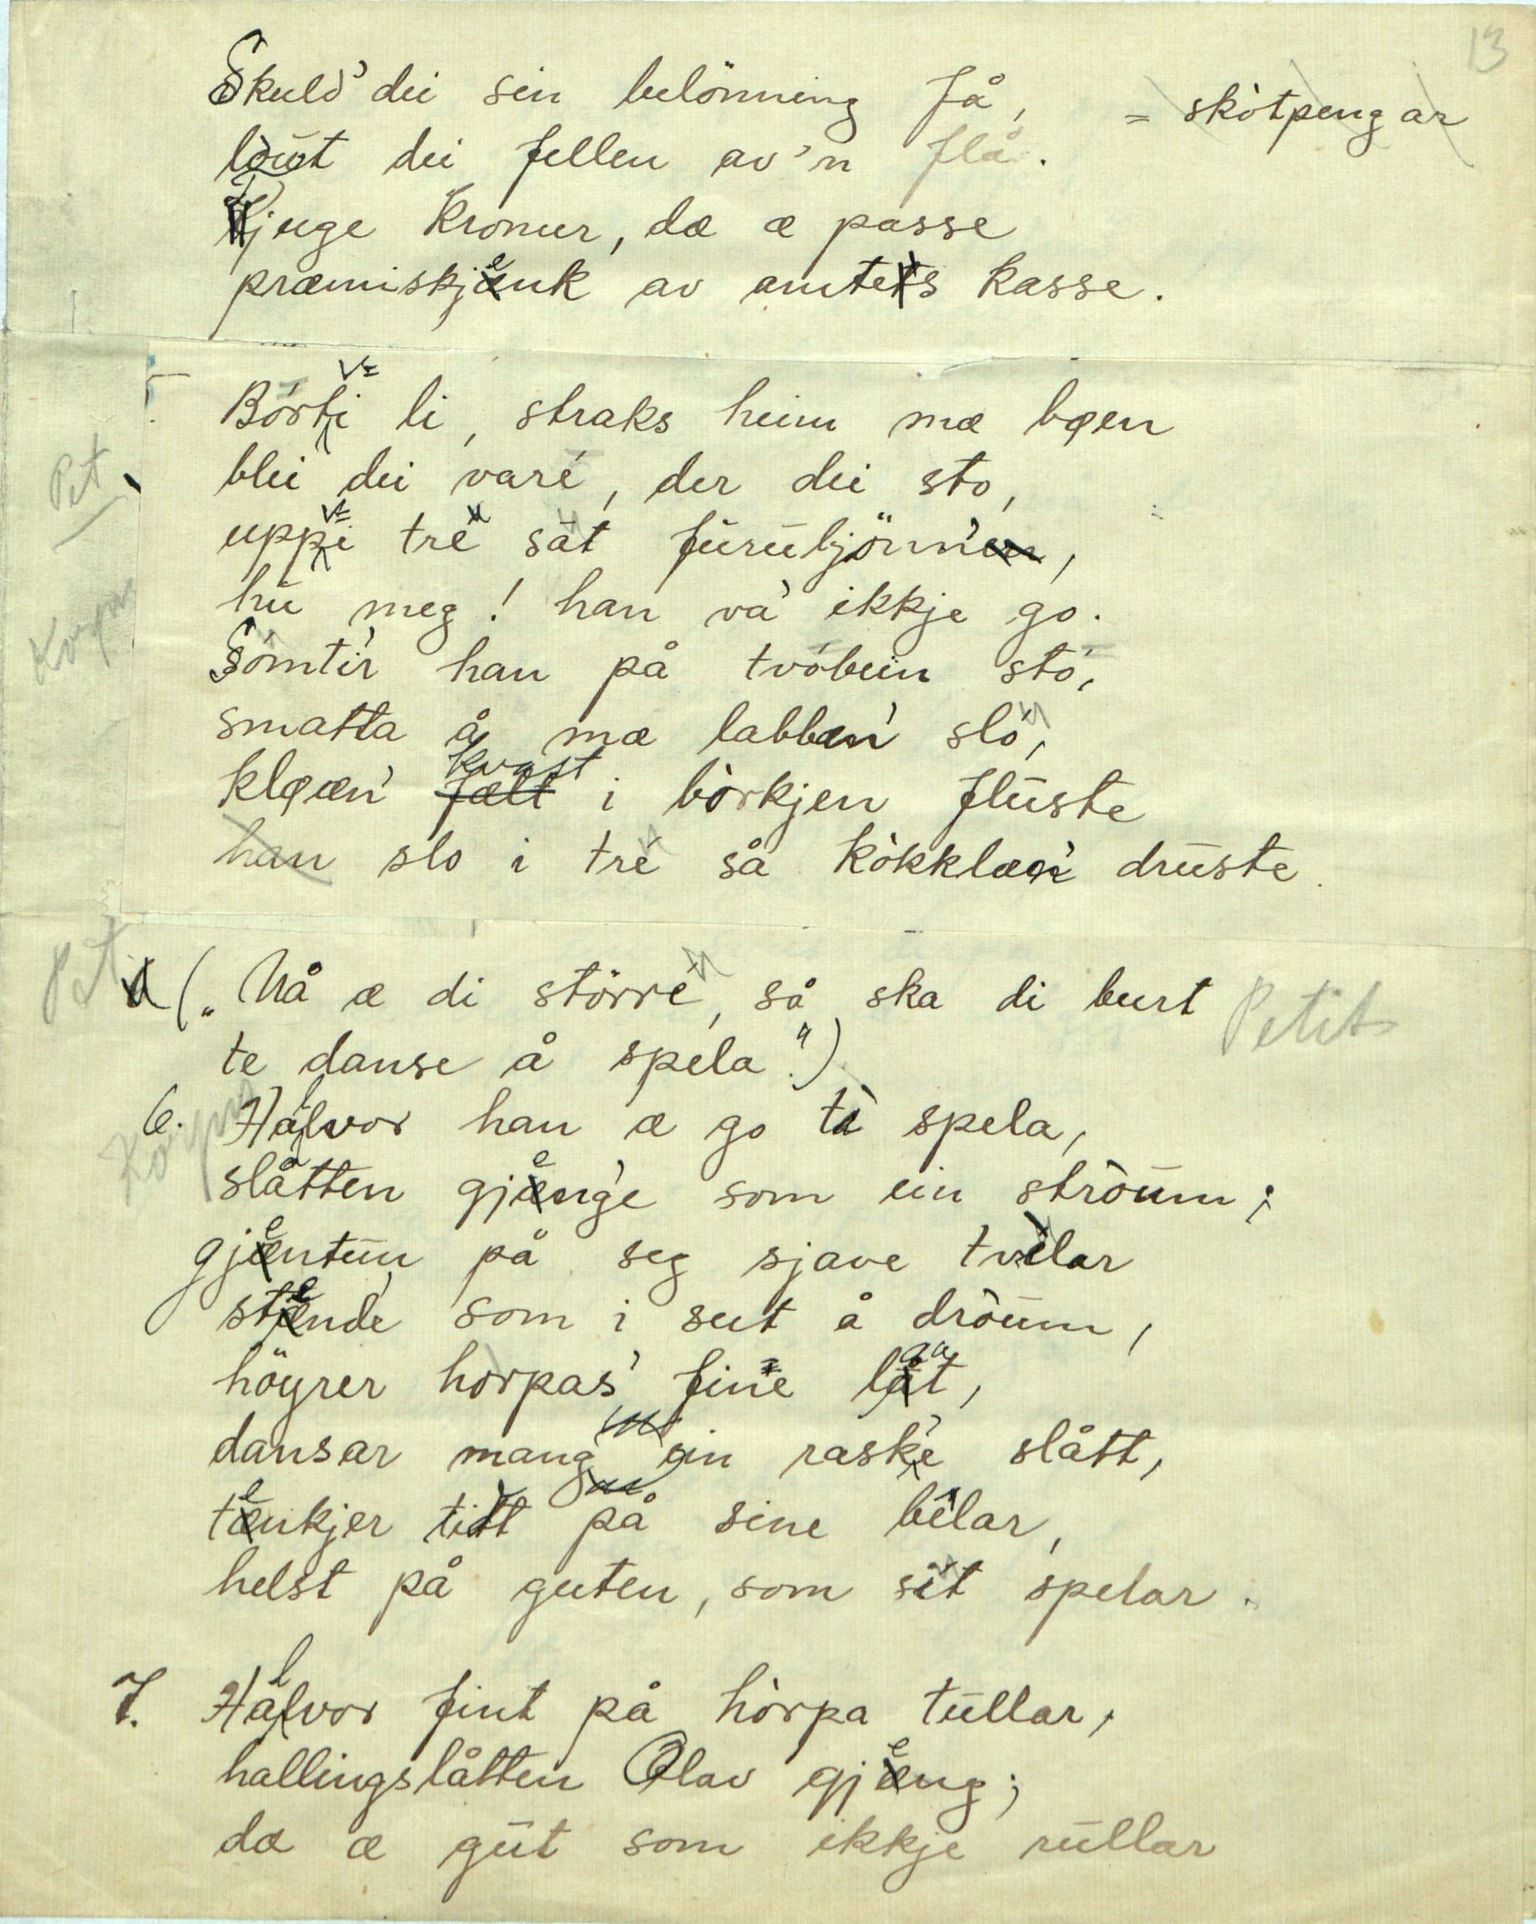 13
Skuld' dei sin belönning få, = skòtpengar
löut dei fellen av'n flå.
Tjuge kronur, dæ æ passe
præmiskjenk av amtets kasse.
Börti li, straks heim mæ bøen
Pet
blei dei varé, der dei sto,
uppi tre sàt fūrūbjönn',
hū meg! han va' ikkje go.
Korpus
Sòmti'r han på tvóbein sto,
smatta å mæ labbæn' slo,
kløæn' kvast i bòrkjen flūste
slo i tre så kòkklæn' drūste.
Pet
(„Nå æ di störré, så ska di burt Petit
te danse å spela".)
Korpus
6. Hålvor han æ go ti spela,
slåtten gjenge som ein ströūm;
gjentūn på seg sjave tvilar
stende som i sut å dröūm,
höyrer horpas' fine låt,
dansar mang ein raske slått,
tenkjer titt på sine bêlar,
helst på guten, som sit spelar.
7. Hålvor fint på hòrpa tūllar,
hallingslåtten Olav gjeng;
dæ æ gūt som ikkje rūllar